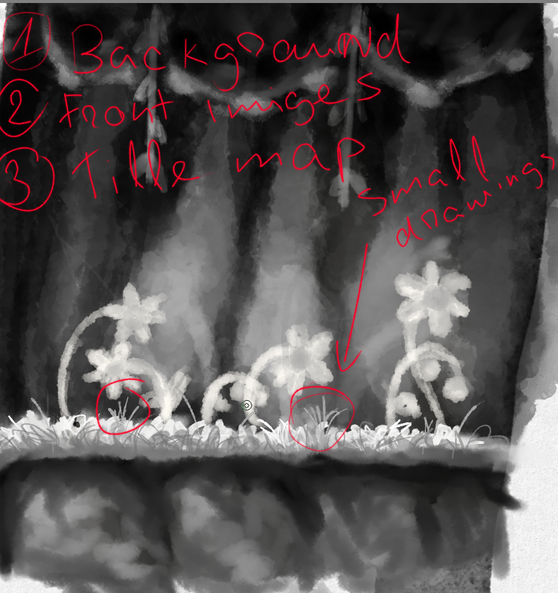 ① Background
② Front images
③ Tille map
small
drawings